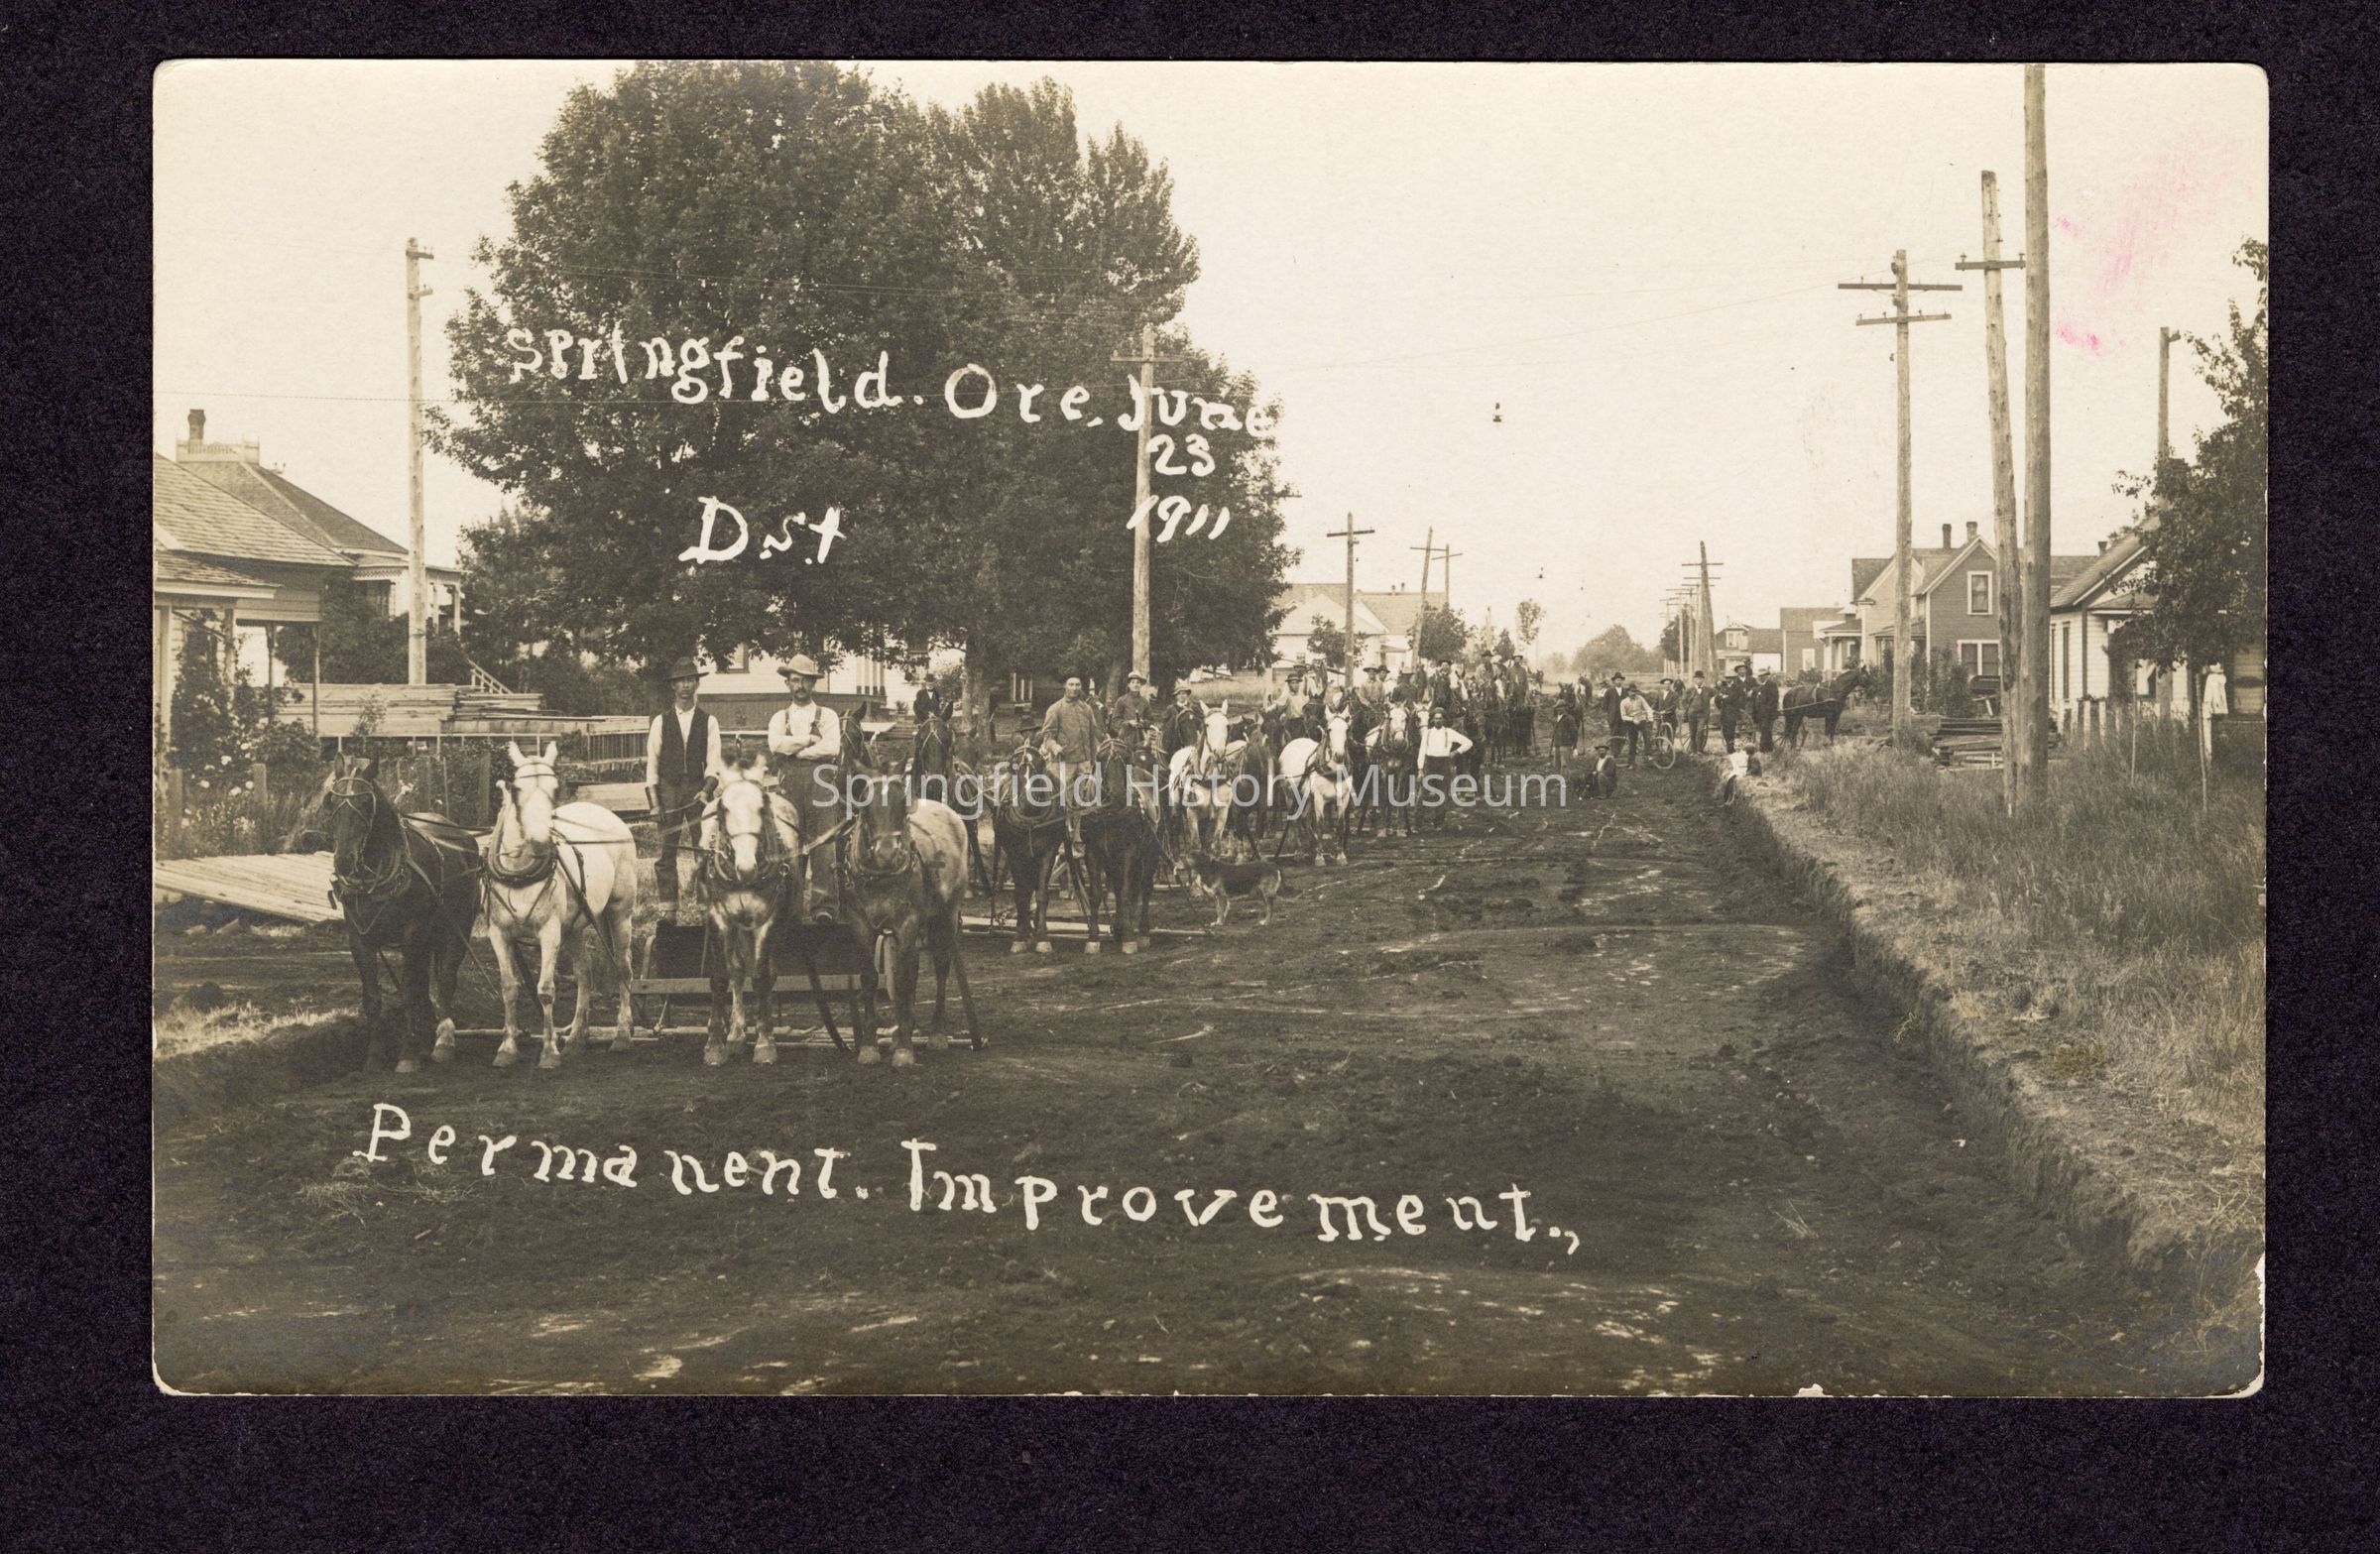 Springfield. Ore, June
23
D.st
1911
Springfield History Museum
Permanent. Improvement.,